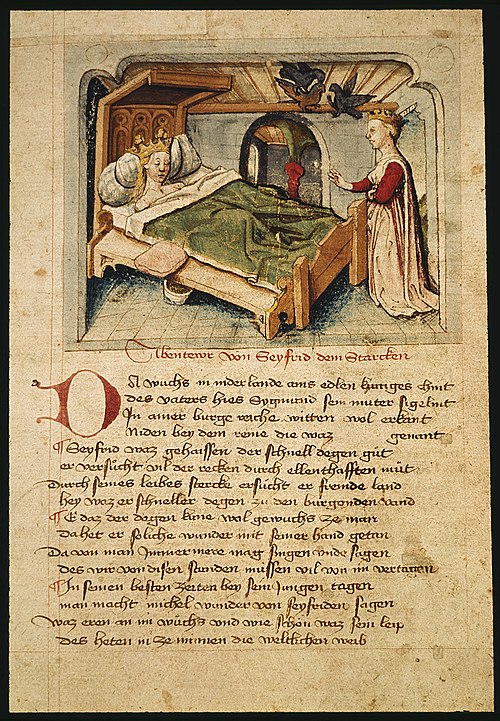 Abentewr von Seyfrid dem Starcken
DA wuchs in niderlande ains edlen kuniges chint
des vaters hies Sygmund sein muter sigelint
In ainer burge reiche witten wol erkant
Niden bey dem reine die waz genant
¶ Seyfrid waz gehaissen der schnell degen gůt
er versůcht vil der recken durch ellenthafften můt
Durch seines leibes stercke ersucht er fremde land
hey waz er schneller degen zu den burgonden vand
¶ E daz der degen kune wol gewuchs ze man
da het er soliche wunder mit seiner hand getan
Da von man immer mere mag singen vnde sagen
des wir von disen stunden müssen vil von im vertagen
¶ In seinen besten zeiten bey sein jungen tagen
man macht michel wunder von seyfriden sagen
Waz eren an im wůchs vnd wie schon waz sein leip
des heten in ze minnen die weltlichen weib